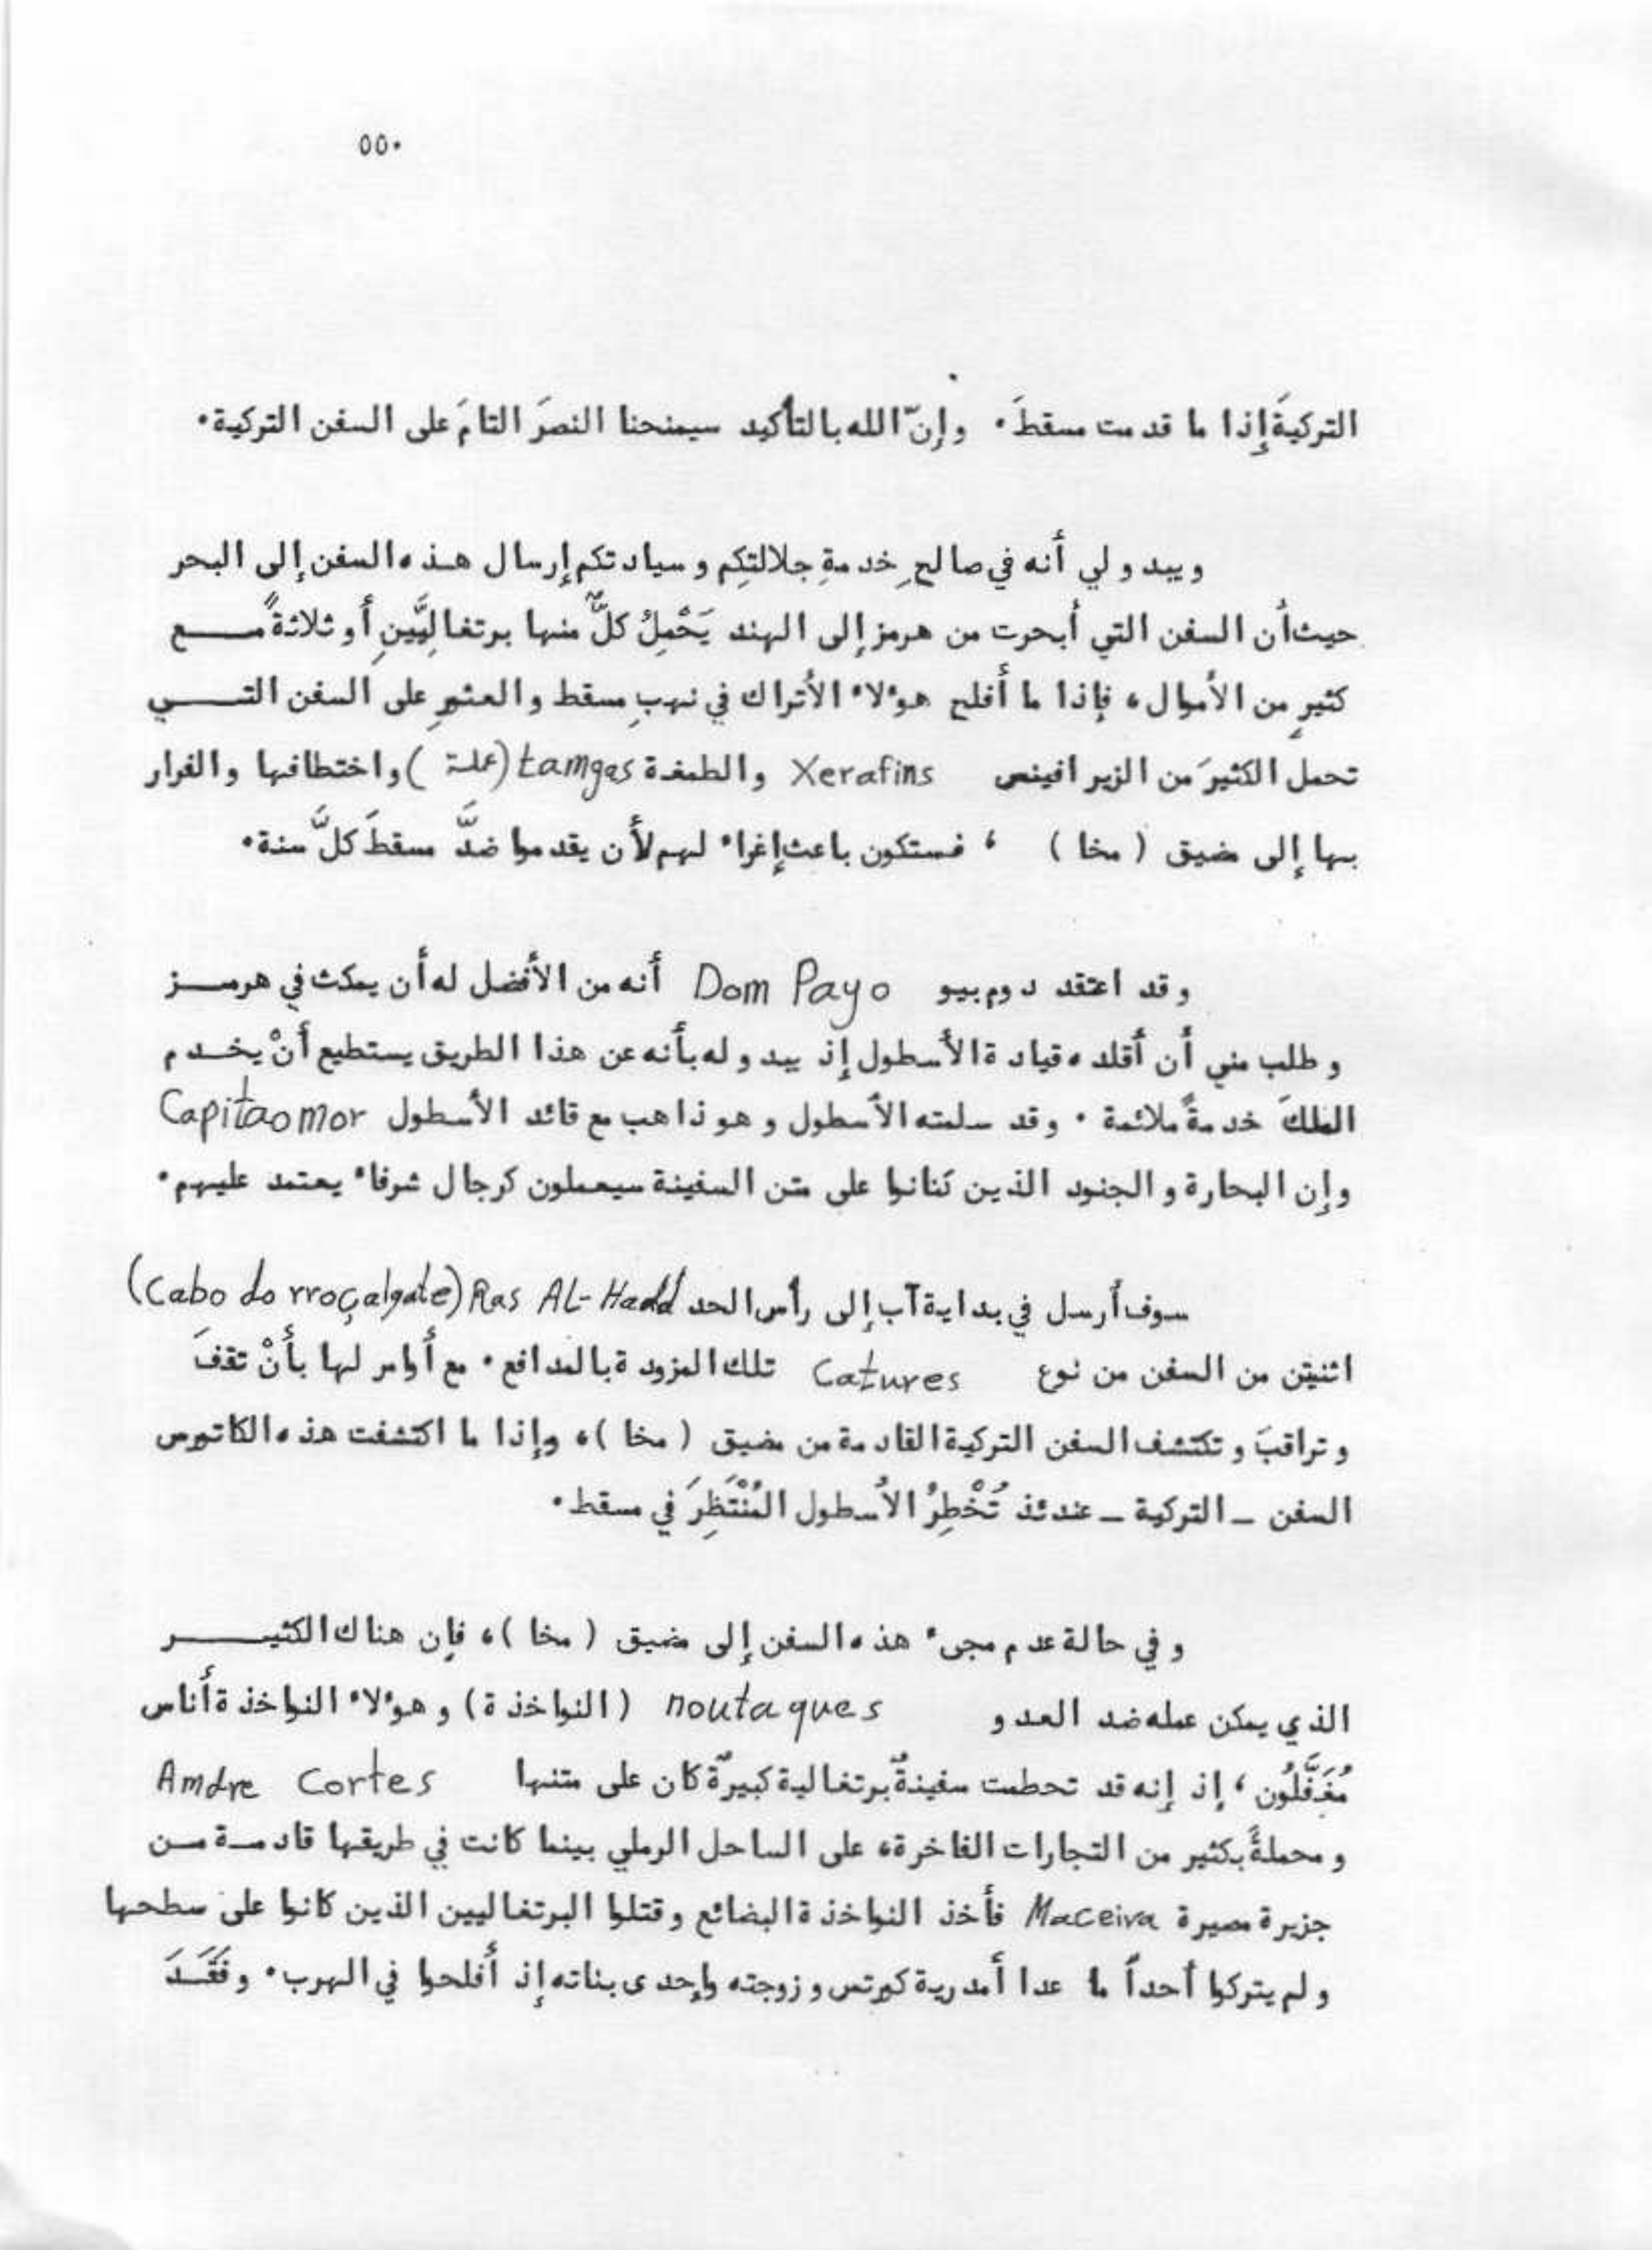 ٥٥٠
التركيةَ إذا ما قدمت مسقطَ. وإنّ الله بالتأكيد سيمنحنا النصرَ التامَ على السفن التركية.
ويبدو لي أنه في صالحِ خدمةِ جلالتِكم وسيادتكم إرسال هذه السفن إلى البحر
حيث أن السفن التي أبحرت من هرمز إلى الهند يَحْمِلُ كلٌّ منها برتغاليَّينِ أو ثلاثةً مــــع
كثيرٍ من الأموال، فإذا ما أفلح هؤلاء الأتراك في نهبِ مسقط والعثورِ على السفن التــــي
تحمل الكثيرَ من الزيرافينس Xerafins والطمغة tamgas (عملة) واختطافها والفرار
بها إلى مضيق ( مخا ) ، فستكون باعث إغراء لهم لأن يقدموا ضدَّ مسقطَ كلَّ سنة.
وقد اعتقد دوم بيو Dom Payo أنه من الأفضل له أن يمكث في هرمــز
وطلب مني أن أقلده قيادة الأسطول إذ يبدو له بأنه عن هذا الطريق يستطيع أنْ يخــدم
الملكَ خدمةً ملائمة . وقد سلمته الأسطول وهو ذاهب مع قائد الأسطول Capitaomor
وإن البحارة والجنود الذين كانوا على متن السفينة سيعملون كرجال شرفاء يعتمد عليهم.
سوف أرسل في بداية آب إلى رأس الحد Ras AL-Hadd (Cabo do rroçalgate)
اثنتين من السفن من نوع Catures تلك المزودة بالمدافع. مع أوامر لها بأنْ تقفَ
وتراقبَ وتكتشف السفن التركية القادمة من مضيق ( مخا )، وإذا ما اكتشفت هذه الكاتيورس
السفن ـ التركية ـ عندئذ تُخْطِرُ الأسطول المُنْتَظِرَ في مسقط.
وفي حالة عدم مجيء هذه السفن إلى مضيق ( مخا )، فإن هناك الكثيــــر
الذي يمكن عمله ضد العدو noutaques (النواخذة) وهؤلاء النواخذة أناس
مُغَفَّلُون ، إذ إنه قد تحطمت سفينةٌ برتغالية كبيرةٌ كان على متنها Amdre Cortes
ومحملةً بكثير من التجارات الفاخرة، على الساحل الرملي بينما كانت في طريقها قادمــة مــن
جزيرة مصيرة Maceira فأخذ النواخذة البضائع وقتلوا البرتغاليين الذين كانوا على سطحها
ولم يتركوا أحداً ما عدا أمدرية كورتس وزوجته وإحدى بناته إذ أفلحوا في الهرب. وفَقَــدَ